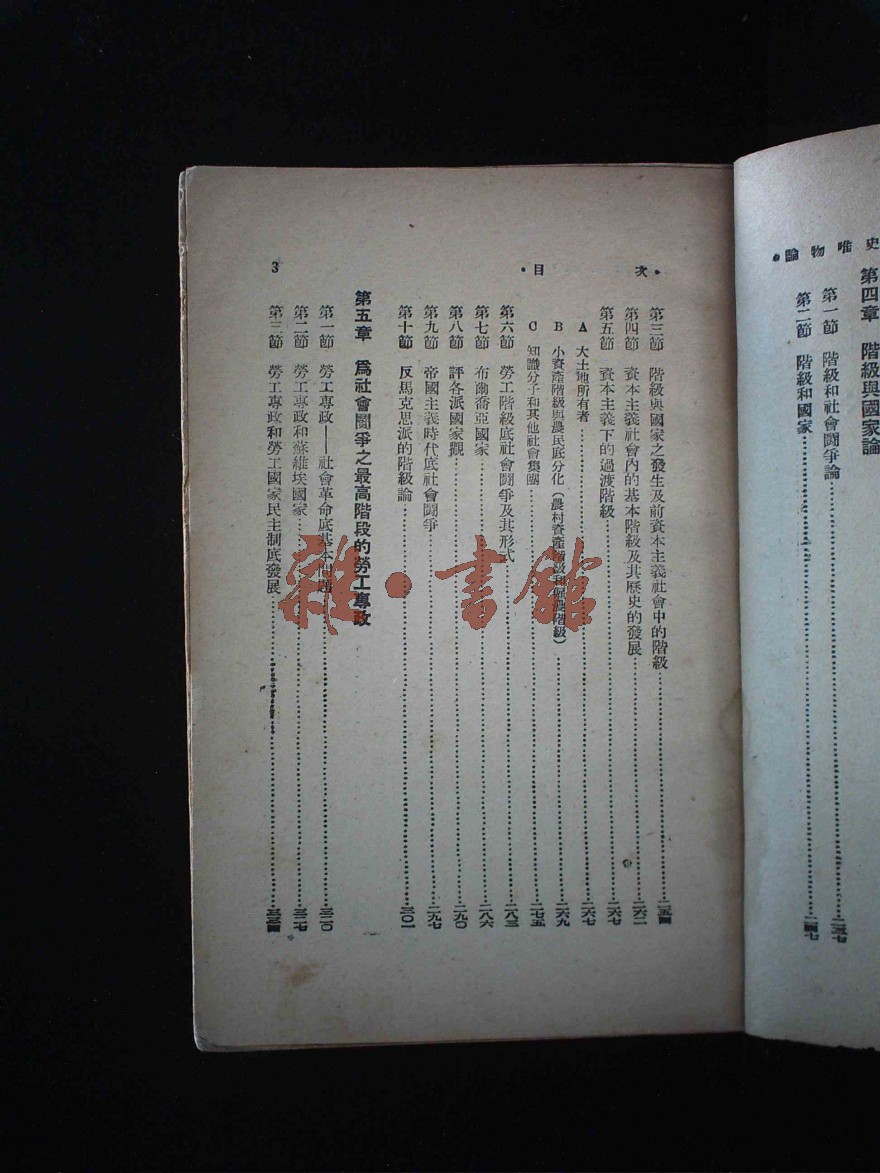 史唯物論•
第四章　階級與國家論
第一節　階級和社會鬪爭論……二三七
第二節　階級和國家……二四七
•次目•
第三節　階級與國家之發生及前資本主義社會中的階級……二五四
第四節　資本主義社會內的基本階級及其歷史的發展……二六二
第五節　資本主義下的過渡階級……二六七
A　大土地所有者……二六七
B　小資產階級與農民底分化（農村資產階級和雇農階級）……二六九
C　知識分子和其他社會集團……二七五
第六節　勞工階級底社會鬪爭及其形式……二八三
第七節　布爾喬亞國家……二八六
第八節　評各派國家觀……二九〇
第九節　帝國主義時代底社會鬪爭……二九七
第十節　反馬克思派的階級論……三〇一
第五章　爲社會鬪爭之最高階段的勞工專政
第一節　勞工專政——社會革命底基本問題……三二〇
第二節　勞工專政和蘇維埃國家……三二七
第三節　勞工專政和勞工國家民主制底發展……三三四
3
雜·書館